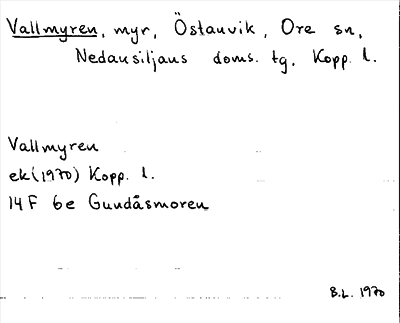 Vallmyren, myr, Östanvik, Ore sn,
Nedansiljans doms. tg, Kopp. l.
Vallmyren
ek (1970) Kopp. l.
14 F 6e Gundåsmoren
B.L. 1970